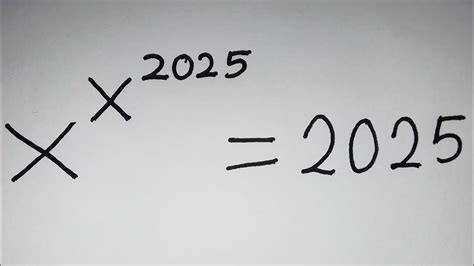 x^{x^{2025}} = 2025